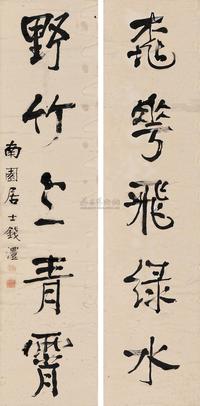 桃华飛緑水
野竹上青霄
南園居士錢灃